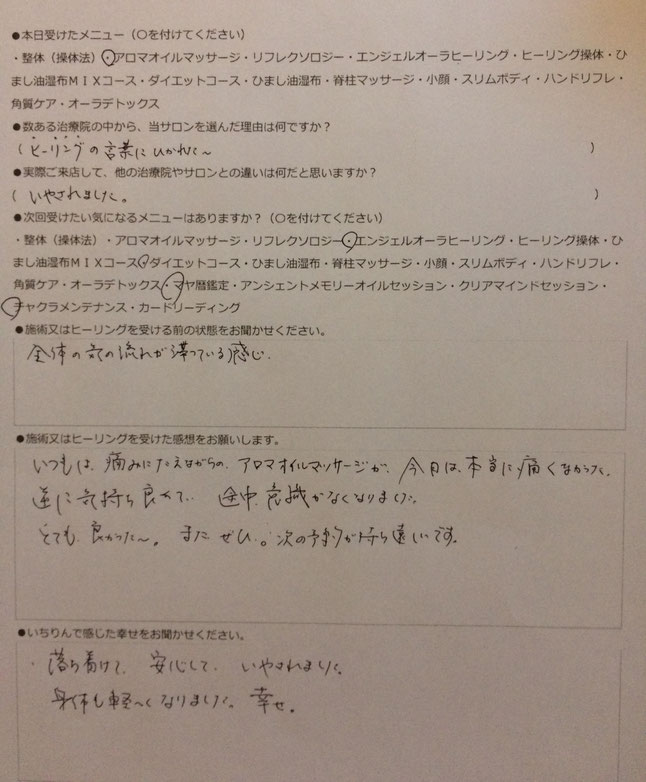 ●本日受けたメニュー（○を付けてください）
・整体（操体法）・アロマオイルマッサージ・リフレクソロジー・エンジェルオーラヒーリング・ヒーリング操体・ひ
まし油湿布ＭＩＸコース・ダイエットコース・ひまし油湿布・脊柱マッサージ・小顔・スリムボディ・ハンドリフレ・
角質ケア・オーラデトックス
●数ある治療院の中から、当サロンを選んだ理由は何ですか？
（ヒーリングの言葉にひかれて〜）
●実際ご来店して、他の治療院やサロンとの違いは何だと思いますか？
（いやされました。）
●次回受けたい気になるメニューはありますか？（○を付けてください）
・整体（操体法）・アロマオイルマッサージ・リフレクソロジー・エンジェルオーラヒーリング・ヒーリング操体・ひ
まし油湿布ＭＩＸコース・ダイエットコース・ひまし油湿布・脊柱マッサージ・小顔・スリムボディ・ハンドリフレ・
角質ケア・オーラデトックス・マヤ暦鑑定・アンシェントメモリーオイルセッション・クリアマインドセッション・
チャクラメンテナンス・カードリーディング
●施術又はヒーリングを受ける前の状態をお聞かせください。
全体の気の流れが滞っている感じ.
●施術又はヒーリングを受けた感想をお願いします。
いつもは、痛みにたえながらの、アロマオイルマッサージが、今日は、本当に痛くなかった。
逆に気持ち良くて、途中、意識がなくなりました。
とても、良かった〜。またぜひ。次の予約が待ち遠しいです。
●いちりんで感じた幸せをお聞かせください。
・落ち着けて、安心して、いやされました。
身体も軽〜くなりました。幸せ。